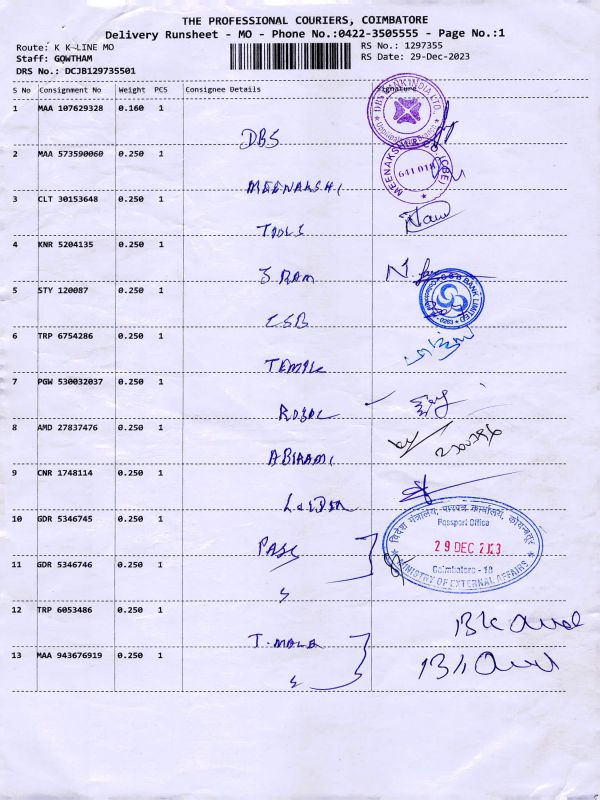 THE PROFESSIONAL COURIERS, COIMBATORE
Delivery Runsheet - MO - Phone No.:0422-3505555 - Page No.:1
Route: K K-LINE MO RS No.: 1297355
Staff: GOWTHAM RS Date: 29-Dec-2023
DRS No.: DCJB129735501
S No Consignment No Weight PCS Consignee Details Signature
1 MAA 107629328 0.160 1
DBS
2 MAA 573590060 0.250 1
MEENAKSHI
641 018
3 CLT 30153648 0.250 1
TOOLS
4 KNR 5204135 0.250 1
S RAM
5 STY 120087 0.250 1
CSB
6 TRP 6754286 0.250 1
TEMPLE
7 PGW 530032037 0.250 1
ROYAL
8 AMD 27837476 0.250 1
ABIRAMI
9 CNR 1748114 0.250 1
10 GDR 5346745 0.250 1
PASS
விदेश मंत्रालय, पासपोर्ट कार्यालय, कोयम्बत्तूर
Passport Office
29 DEC 2023
Coimbatore - 18
MINISTRY OF EXTERNAL AFFAIRS
11 GDR 5346746 0.250 1
12 TRP 6053486 0.250 1
T. MALA
13 MAA 943676919 0.250 1